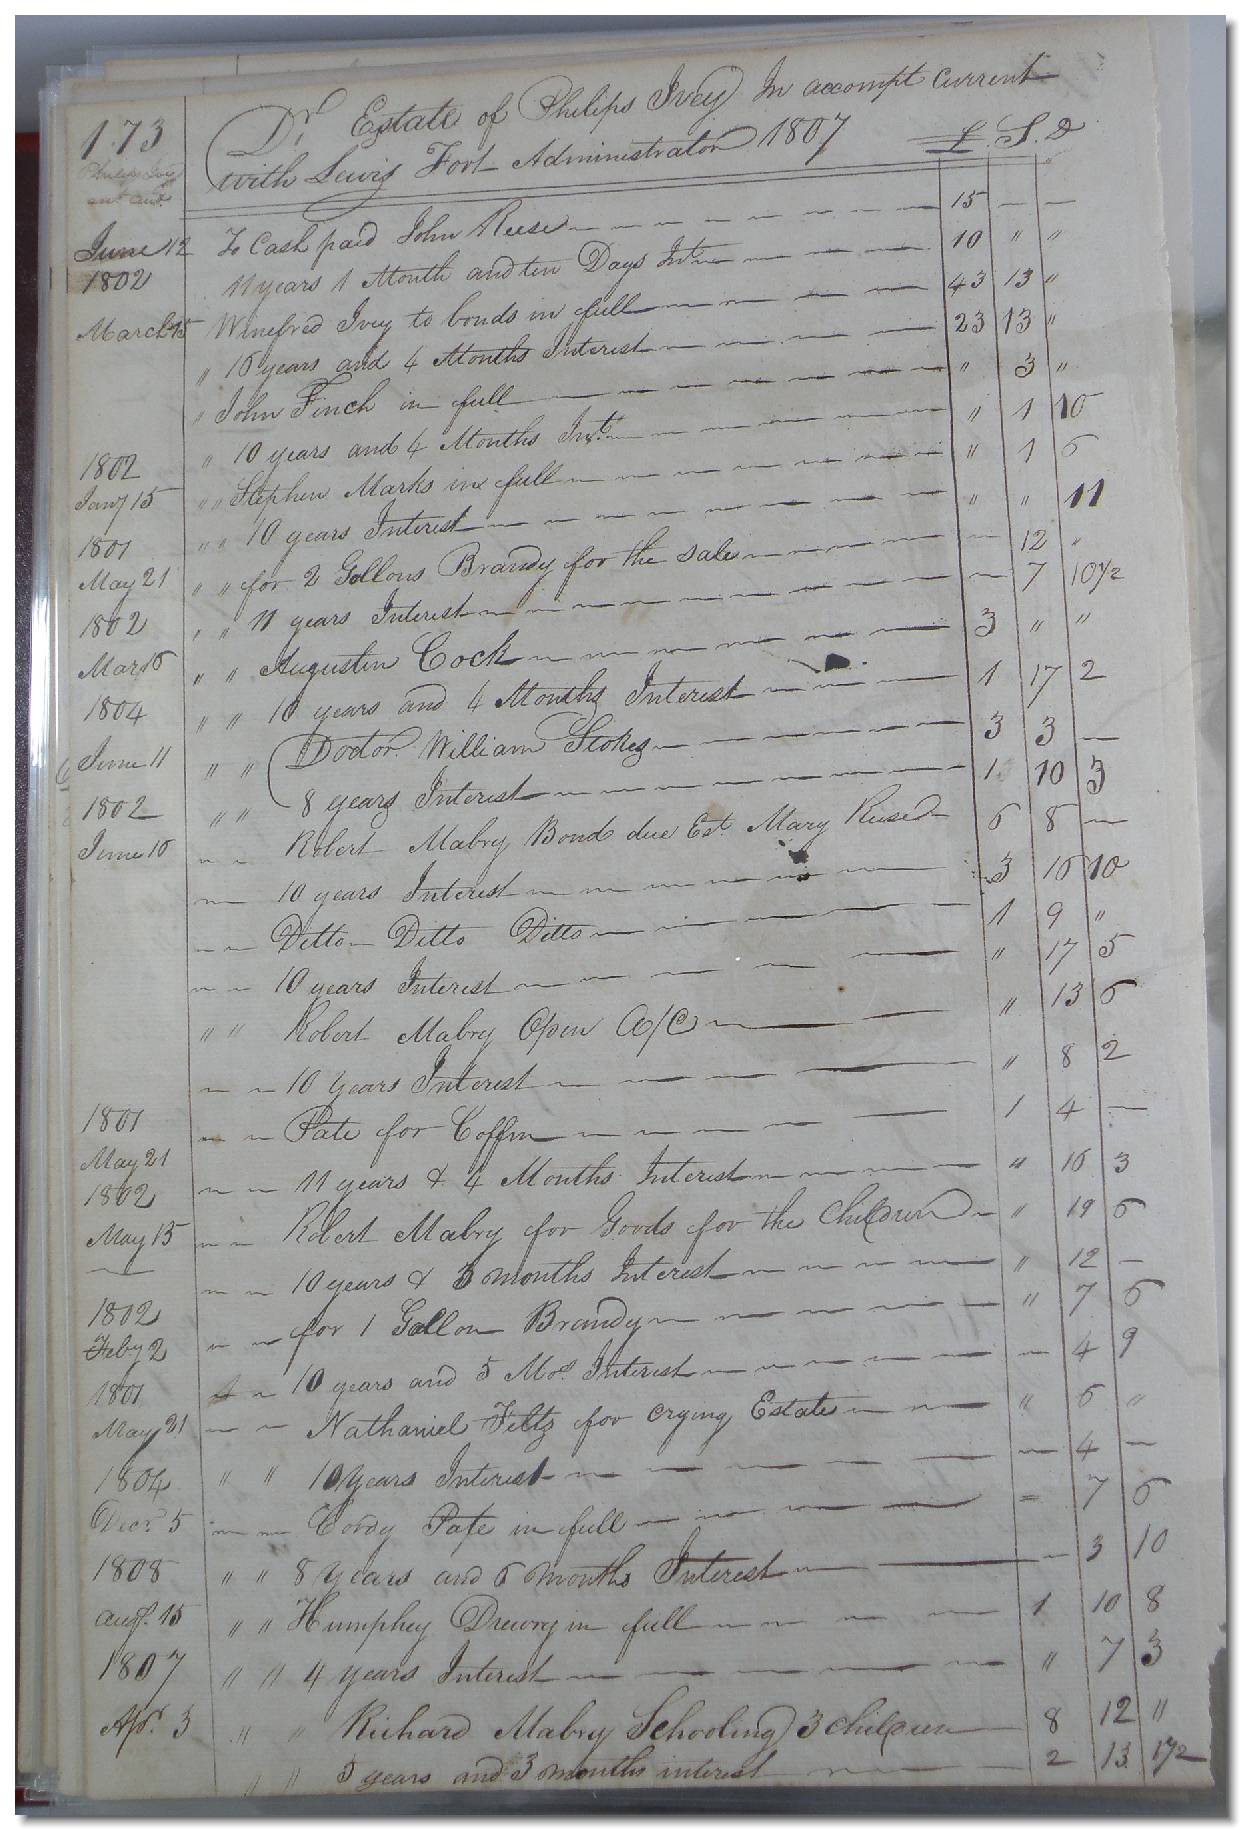 173
Dr Estate of Philips Ivey In accompt current
with Lewis Fort Administrator 1807 £ S. D
June 12 To Cash paid John Reese 15 — —
1802 11 years 1 Month and ten Days Int 10 " "
March 15 Winefred Ivey to bonds in full 43 13 "
" 16 years and 4 Months Interest 23 13 "
" John Finch in full " 3 "
" 10 years and 4 Months Int. " 1 10
1802
Jany 15 " " Stephen Marks in full " 1 6
1801 " " 10 years Interest " " 11
May 21 " " for 2 Gollons Brandy for the sale — 12 "
1802 " " 11 years Interest — 7 10 1/2
Mar 16 " " Augustin Cock 3 " "
1804 " " 10 years and 4 Months Interest 1 17 2
June 11 " " Doctor William Stokes 3 3 —
1802 " " 8 years Interest 1 10 3
June 10 — — Robert Mabry Bond due Est. Mary Reese 6 8 —
— — 10 years Interest 3 16 10
— — Ditto — Ditto Ditto 1 9 "
— — 10 years Interest " 17 5
" " Robert Mabry Open A/C " 13 6
— — 10 years Interest " 8 2
1801 — — Pate for Coffin 1 4 —
May 21
1802 — — 11 years & 4 Months Interest " 16 3
May 15 — — Robert Mabry for Goods for the Children " 19 6
— — 10 years & 3 months Interest " 12 —
1802
Feby 2 — — for 1 Gallon Brandy " 7 6
1801 — 10 years and 5 Mos. Interest — 4 9
May 21 — — Nathaniel Feltz for crying Estate " 6 "
1804 " " 10 years Interest — 4 —
Decr 5 — — Cordy Pate in full = 7 6
1808 " " 8 years and 6 months Interest — 3 10
augt. 15 " " Humphey Drewry in full 1 10 8
1807 " " 4 years Interest " 7 3
Apr. 3 " " Richard Mabry Schooling 3 children 8 12 "
" " 5 years and 3 months interest 2 13 1 1/2